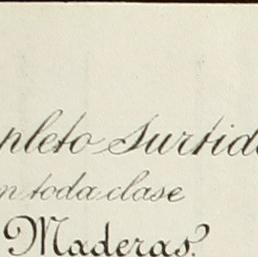 pleto surtido
n toda clase
Maderas.